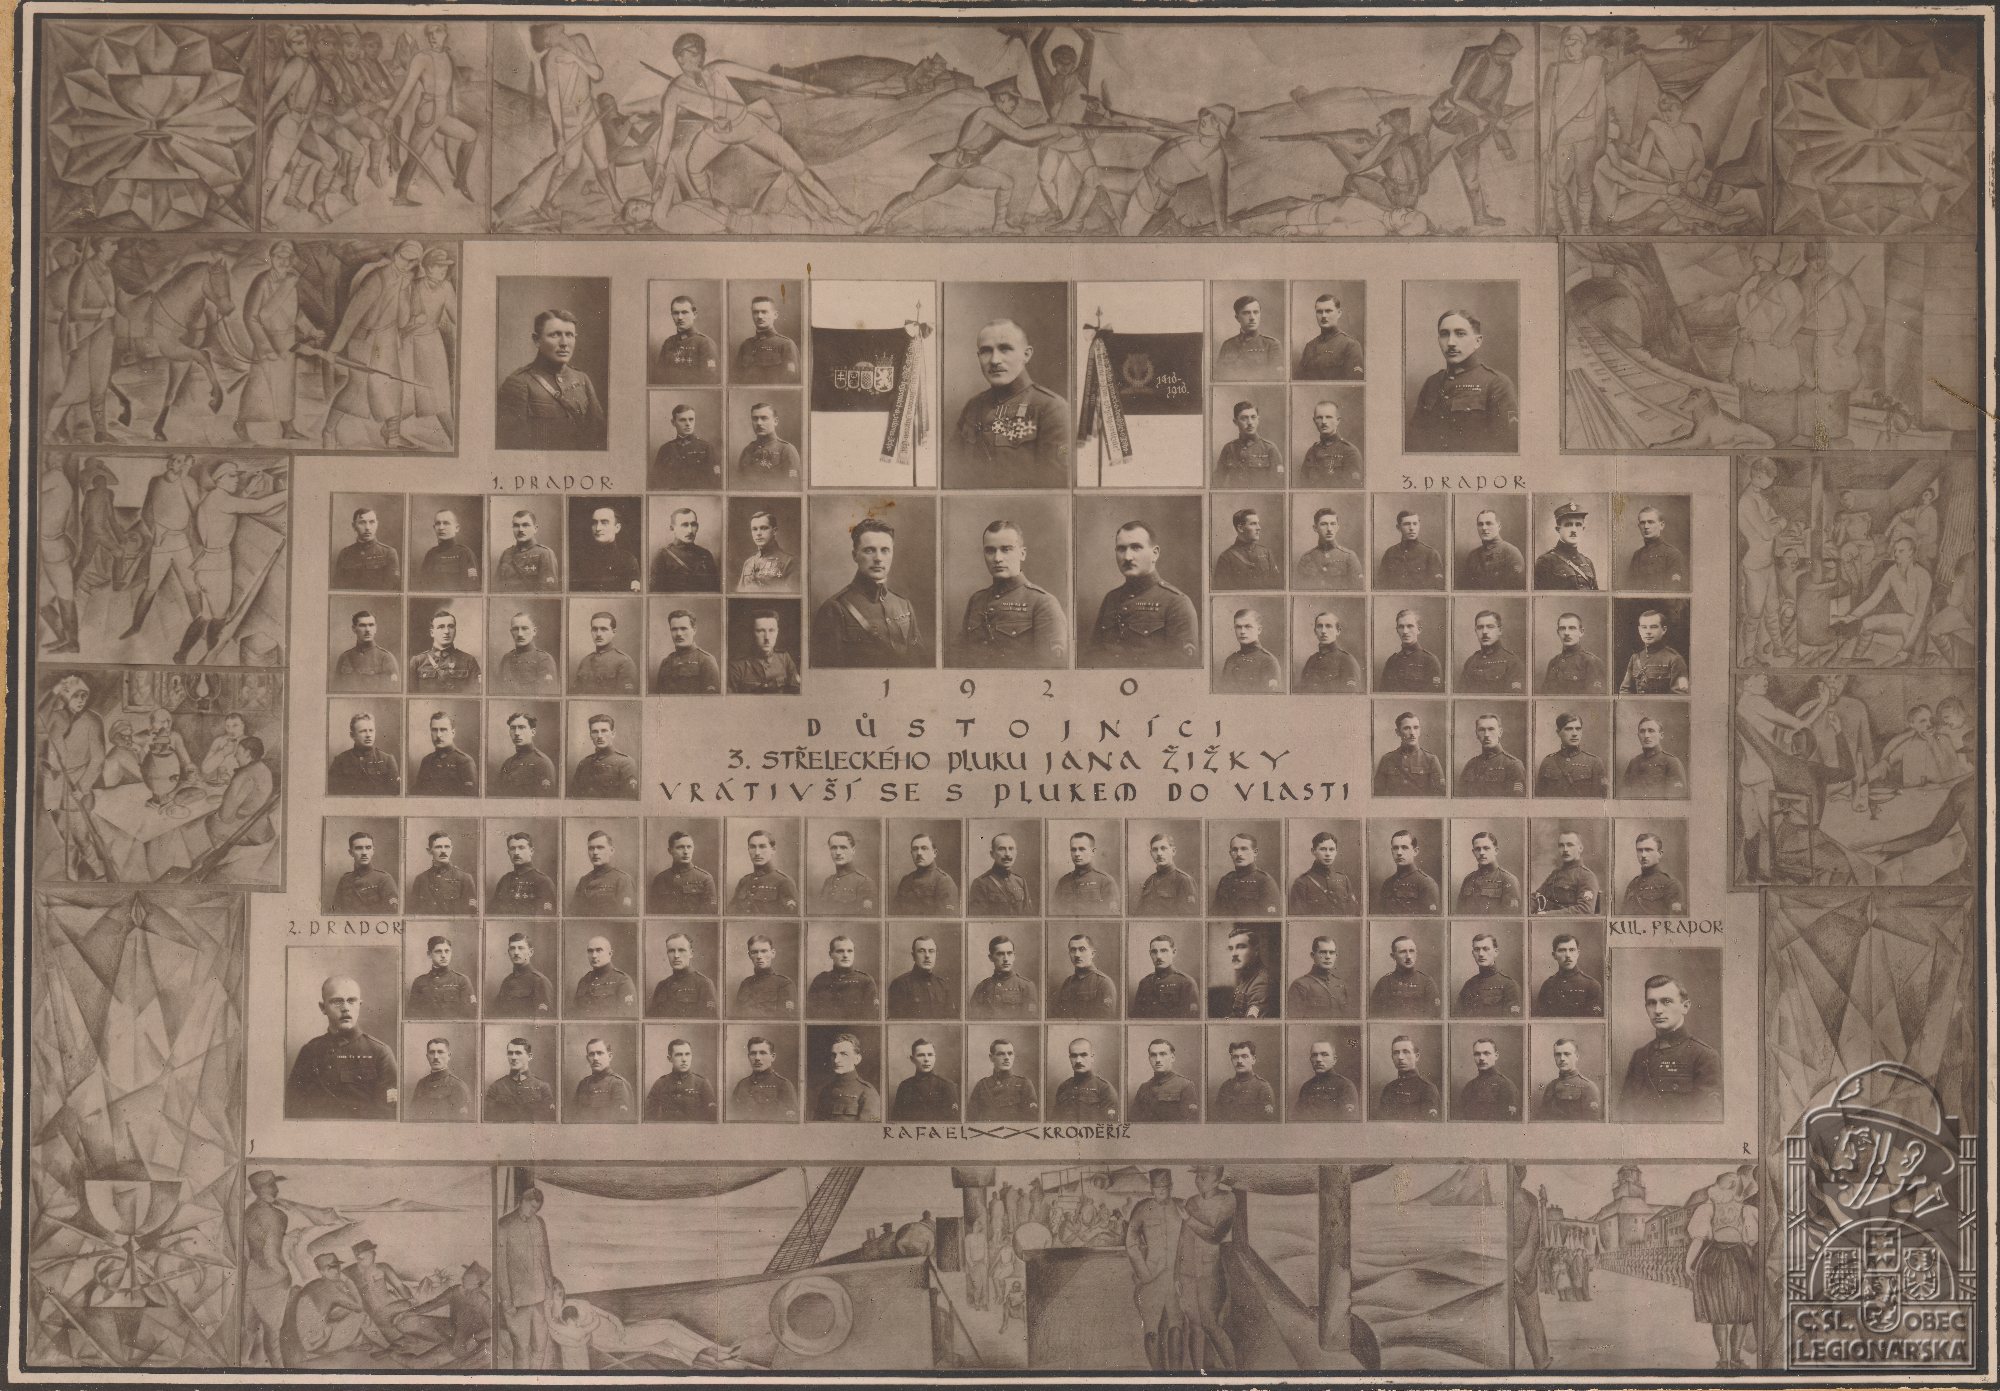 1. PRAPOR
3. PRAPOR
1920
DŮSTOJNÍCI
3. STŘELECKÉHO PLUKU JANA ŽIŽKY
VRÁTIVŠÍ SE S PLUKEM DO VLASTI
2. PRAPOR
KUL. PRAPOR
RAFAEL KROMĚŘÍŽ
J R
Č. SL. OBEC
LEGIONÁŘSKÁ